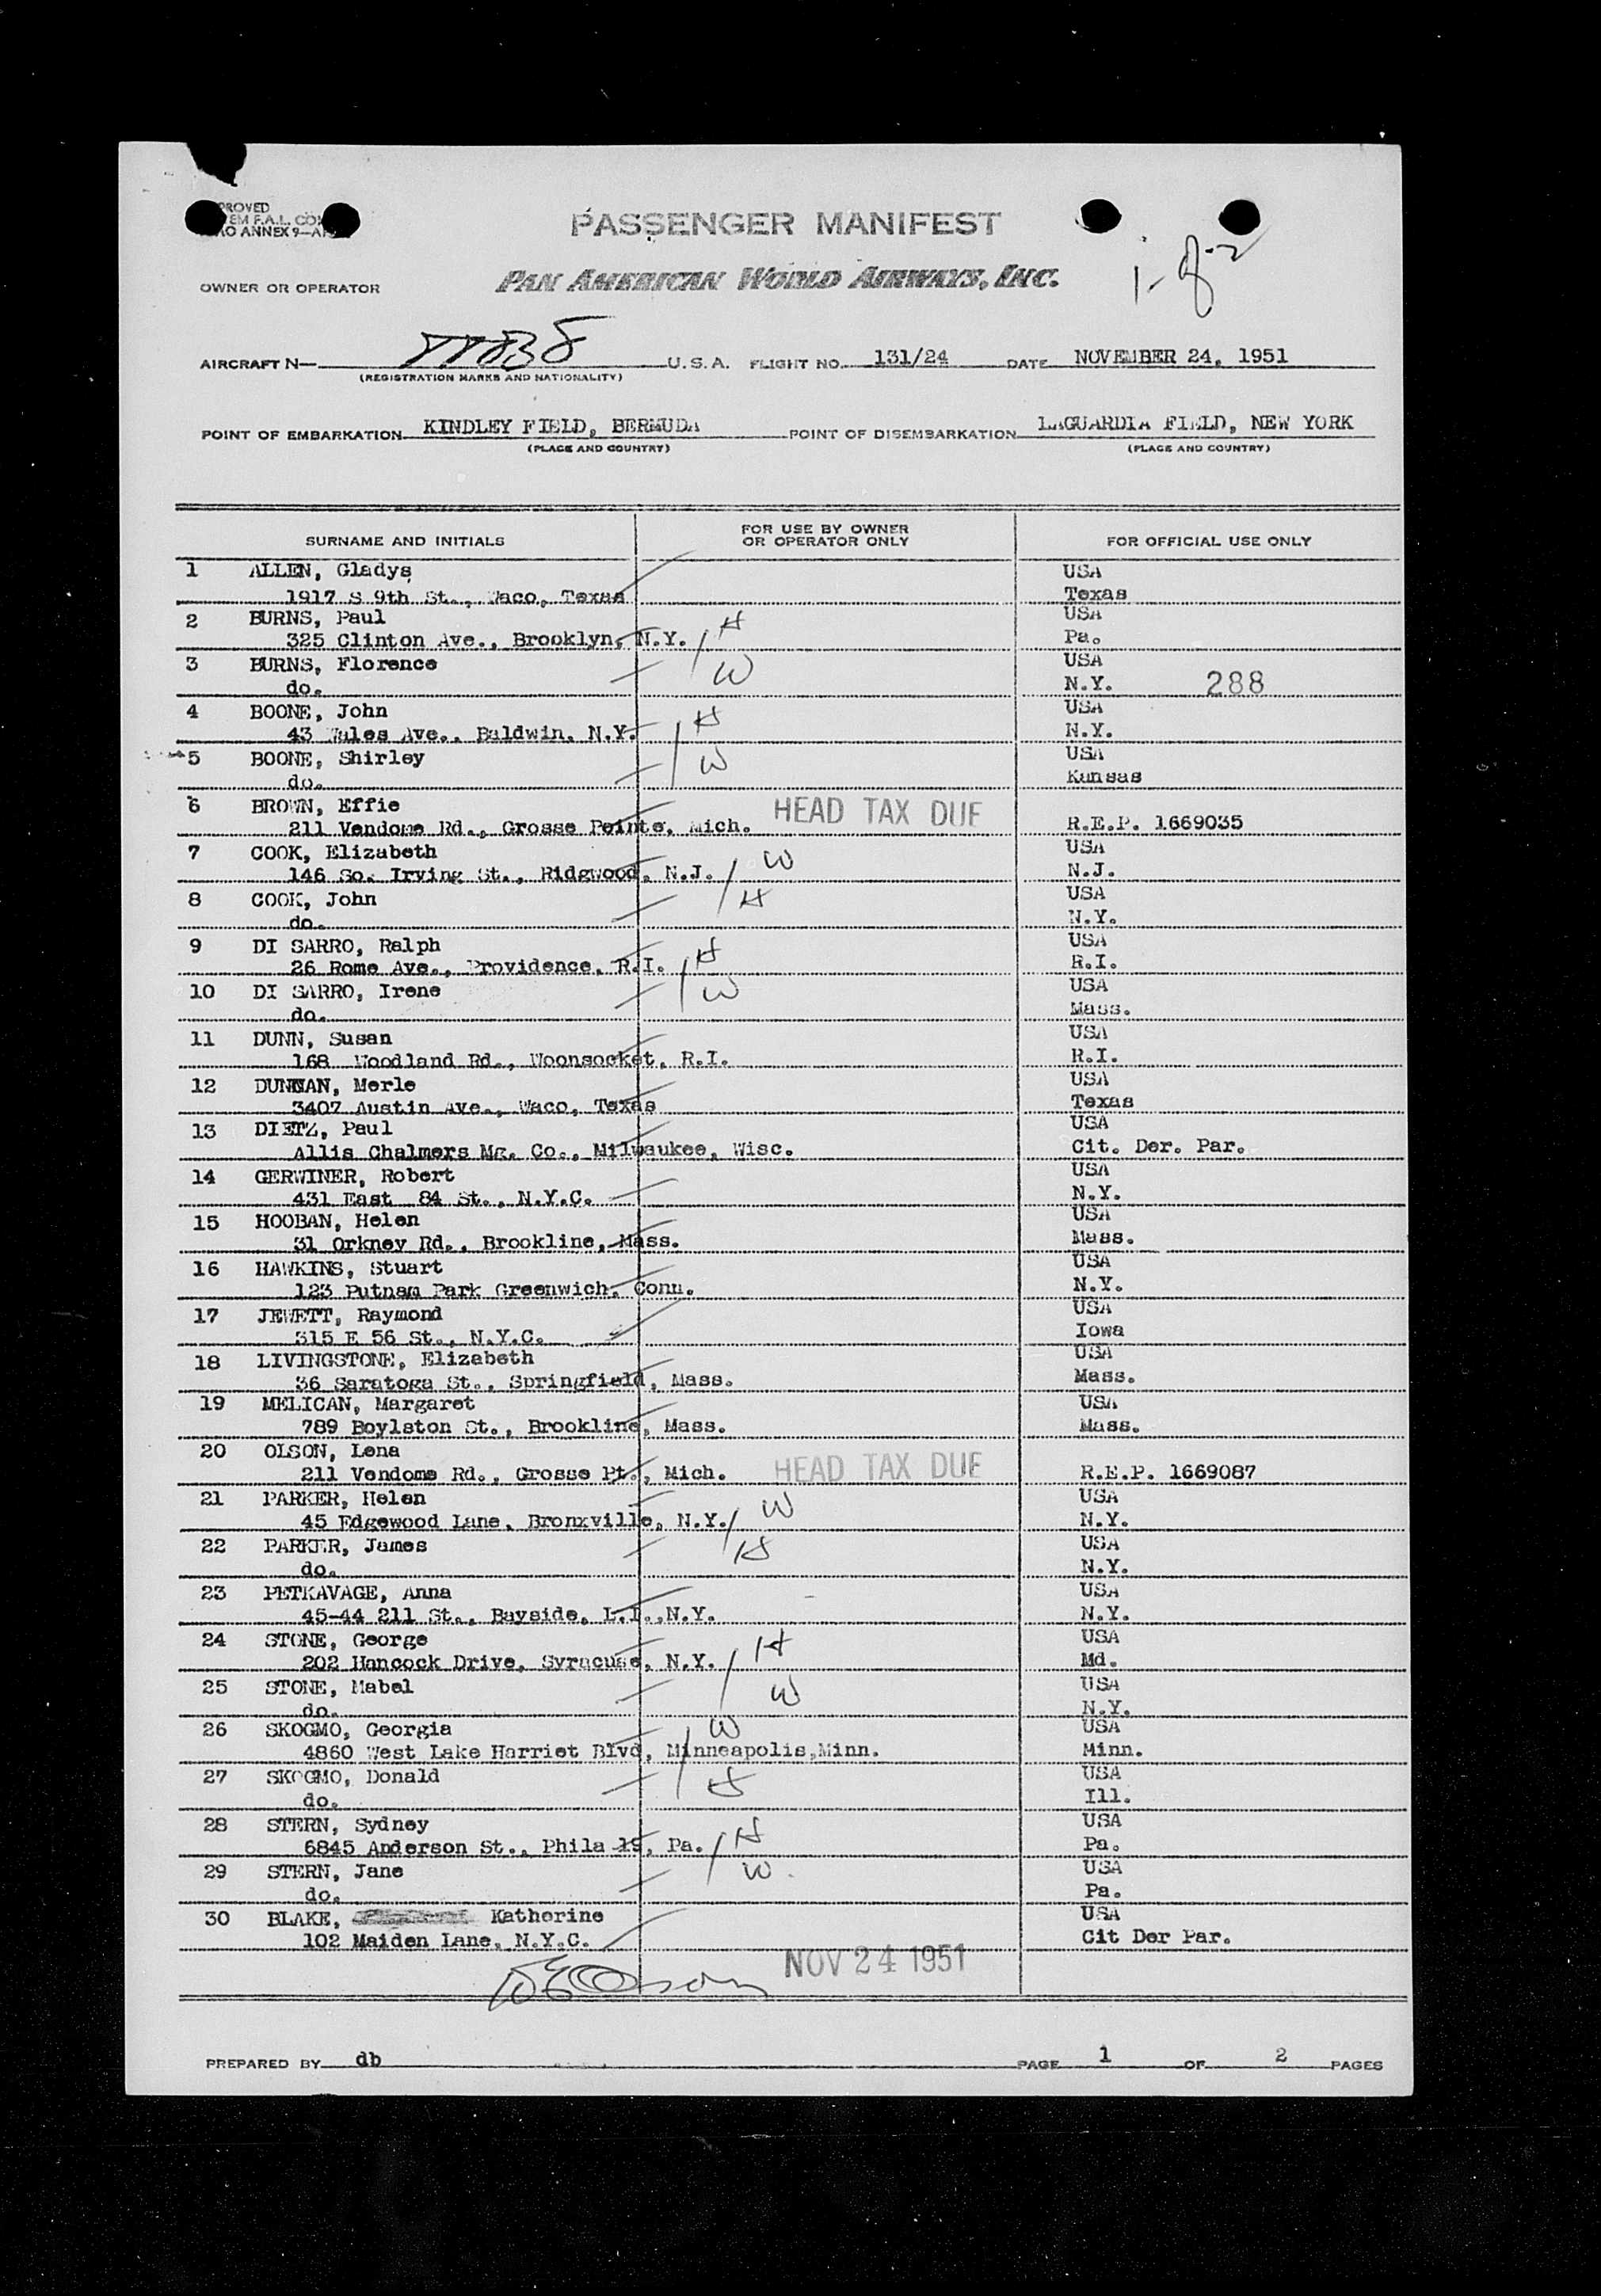 PASSENGER MANIFEST
1-8-2
OWNER OR OPERATOR PAN AMERICAN WORLD AIRWAYS, INC.
AIRCRAFT N— U.S.A. FLIGHT NO. 131/24 DATE NOVEMBER 24, 1951
(REGISTRATION MARKS AND NATIONALITY)
POINT OF EMBARKATION KINDLEY FIELD, BERMUDA POINT OF DISEMBARKATION LAGUARDIA FIELD, NEW YORK
(PLACE AND COUNTRY) (PLACE AND COUNTRY)
SURNAME AND INITIALS FOR USE BY OWNER OR OPERATOR ONLY FOR OFFICIAL USE ONLY
1 ALLEN, Gladys USA
1917 S 9th St., Waco, Texas Texas
2 BURNS, Paul H USA
325 Clinton Ave., Brooklyn, N.Y. Pa.
3 BURNS, Florence W USA
do. N.Y. 288
4 BOONE, John H USA
43 Wales Ave., Baldwin, N.Y. N.Y.
5 BOONE, Shirley W USA
do. Kansas
6 BROWN, Effie HEAD TAX DUE
211 Vendome Rd., Grosse Pointe, Mich. R.E.P. 1669035
7 COOK, Elizabeth W USA
146 So. Irving St., Ridgwood, N.J. N.J.
8 COOK, John H USA
do. N.Y.
9 DI SARRO, Ralph H USA
26 Rome Ave., Providence, R.I. R.I.
10 DI SARRO, Irene W USA
do. Mass.
11 DUNN, Susan USA
168 Woodland Rd., Woonsocket, R.I. R.I.
12 DUNCAN, Merle USA
3407 Austin Ave., Waco, Texas Texas
13 DIETZ, Paul USA
Allis Chalmers Mg. Co., Milwaukee, Wisc. Cit. Der. Par.
14 GERWINER, Robert USA
431 East 84 St., N.Y.C. N.Y.
15 HOOBAN, Helen USA
31 Orkney Rd., Brookline, Mass. Mass.
16 HAWKINS, Stuart USA
123 Putnam Park Greenwich, Conn. N.Y.
17 JEWETT, Raymond USA
315 E 56 St., N.Y.C. Iowa
18 LIVINGSTONE, Elizabeth USA
36 Saratoga St., Springfield, Mass. Mass.
19 MELICAN, Margaret USA
789 Boylston St., Brookline, Mass. Mass.
20 OLSON, Lena HEAD TAX DUE
211 Vendome Rd., Grosse Pt., Mich. R.E.P. 1669087
21 PARKER, Helen W USA
45 Edgewood Lane, Bronxville, N.Y. N.Y.
22 PARKER, James H USA
do. N.Y.
23 PETKAVAGE, Anna USA
45-44 211 St., Bayside, L.I.,N.Y. N.Y.
24 STONE, George H USA
202 Hancock Drive, Syracuse, N.Y. Md.
25 STONE, Mabel W USA
do. N.Y.
26 SKOGMO, Georgia W USA
4860 West Lake Harriet Blvd, Minneapolis,Minn. Minn.
27 SKOGMO, Donald H USA
do. Ill.
28 STERN, Sydney H USA
6845 Anderson St., Phila 19, Pa. Pa.
29 STERN, Jane W USA
do. Pa.
30 BLAKE, Katherine USA
102 Maiden Lane, N.Y.C. Cit Der Par.
NOV 24 1951
PREPARED BY db PAGE 1 OF 2 PAGES